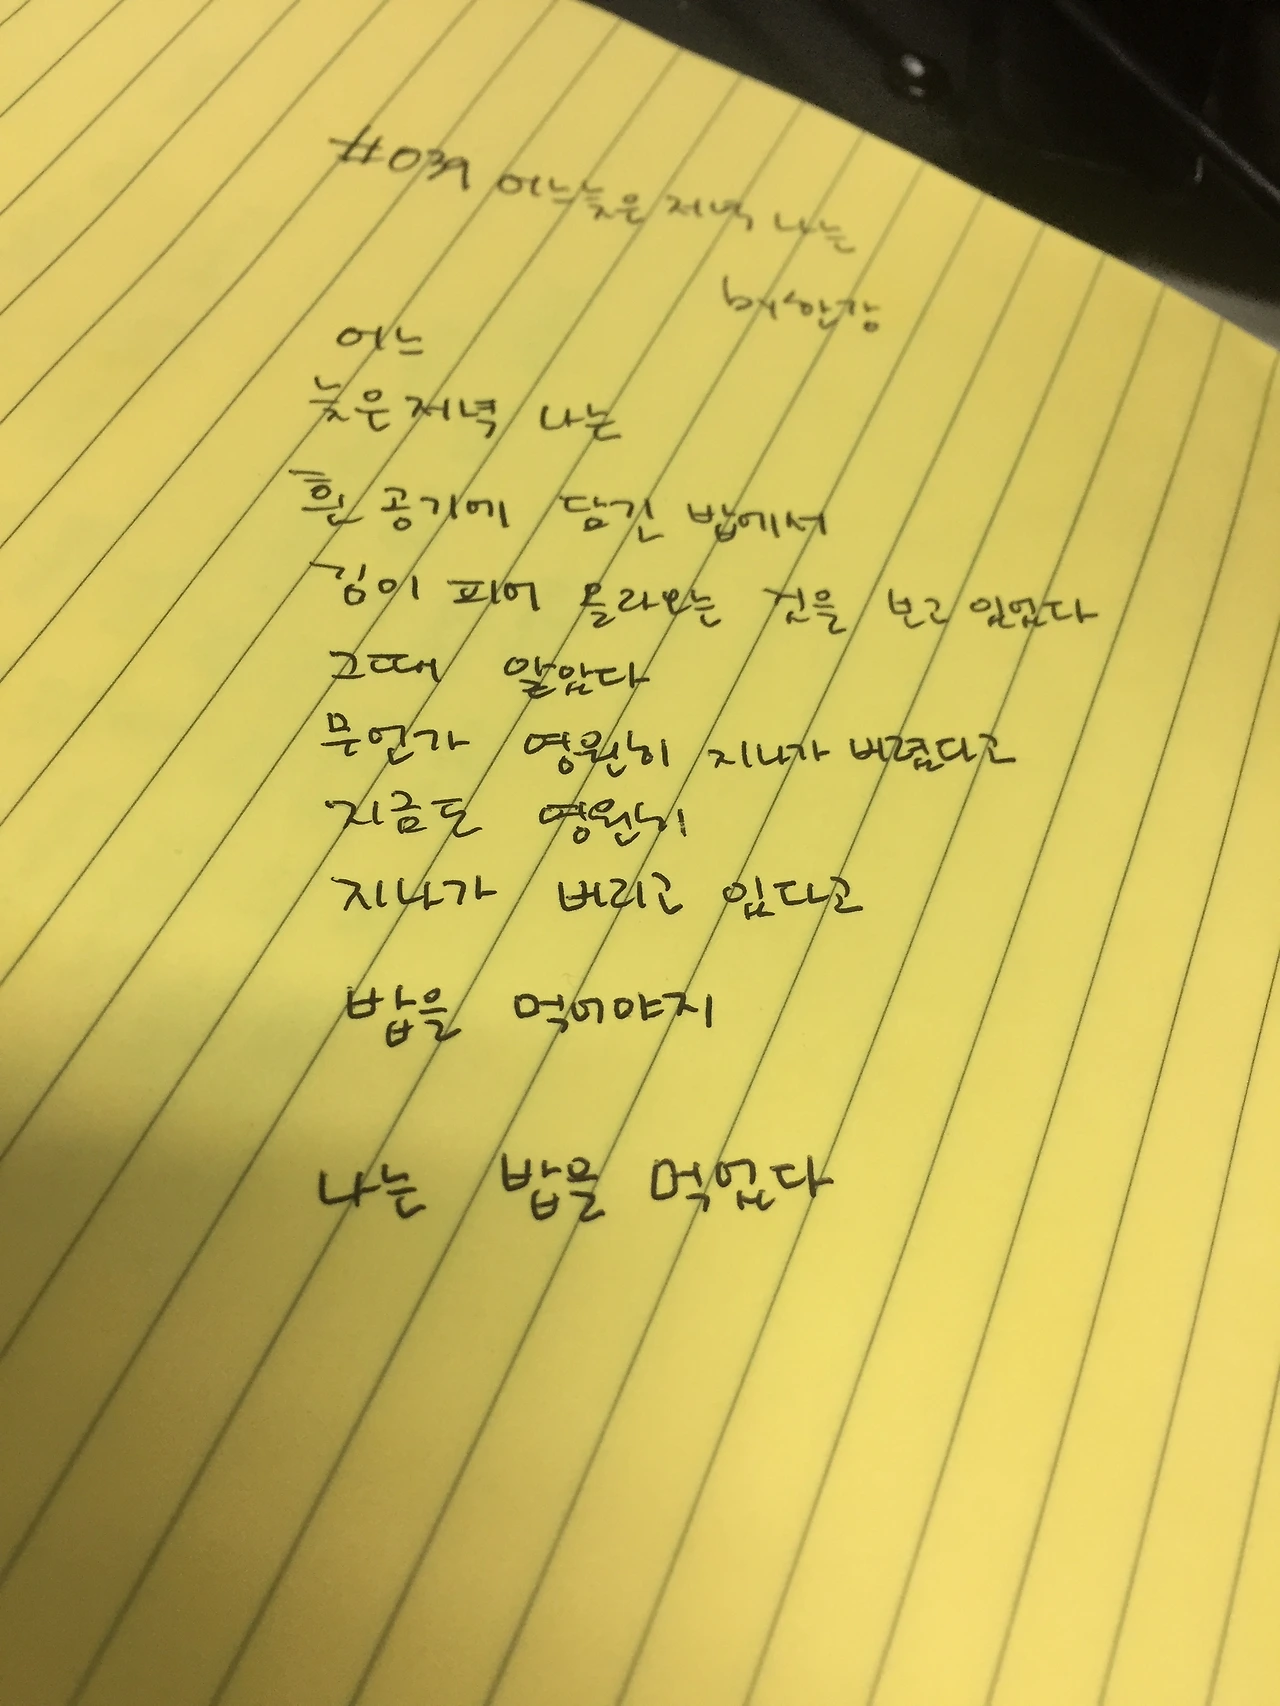 #039 어느 늦은 저녁 나는
by 한강
어느
늦은 저녁 나는
흰 공기에 담긴 밥에서
김이 피어 올라오는 것을 보고 있었다
그때 알았다
무언가 영원히 지나가 버렸다고
지금도 영원히
지나가 버리고 있다고
밥을 먹어야지
나는 밥을 먹었다